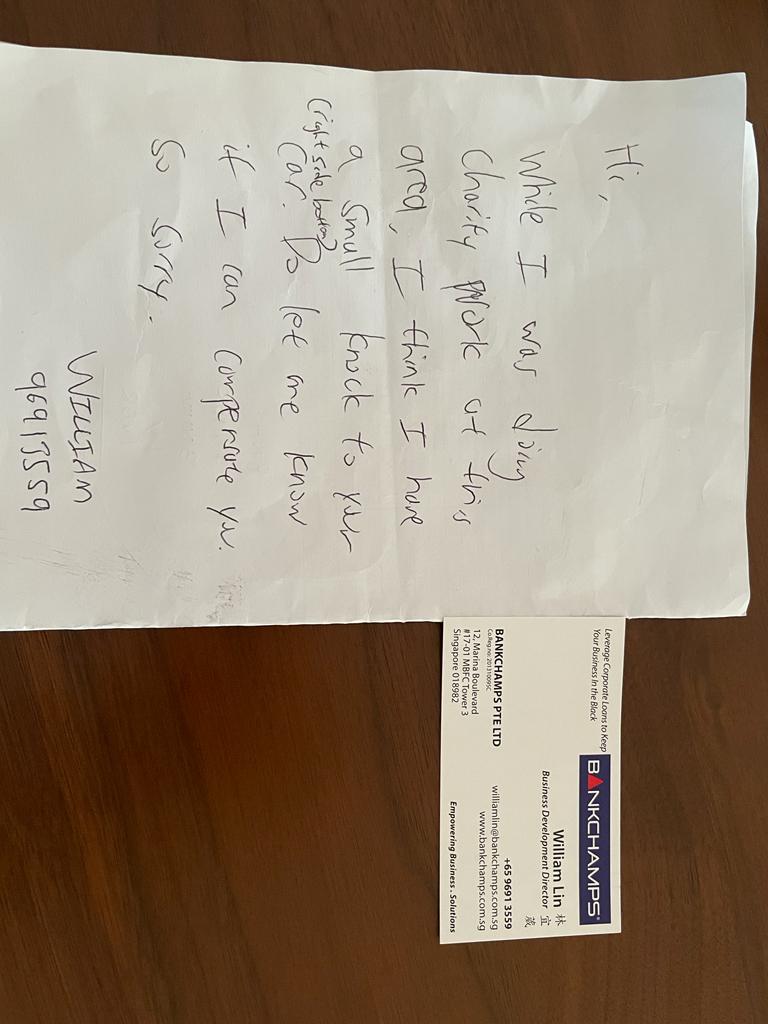 Hi,
While I was doing
charity work at this
area, I think I have
a small knock to your
(right side bottom)
car. Do let me know
if I can compensate you.
So sorry.
WILLIAM
96913559
Leverage Corporate Loans to Keep
Your Business In the Black
BANKCHAMPS®
William Lin 林宜葳
Business Development Director
BANKCHAMPS PTE LTD
Co.Reg no: 201310095C
12, Marina Boulevard
#17-01 MBFC Tower 3
Singapore 018982
+65 9691 3559
williamlin@bankchamps.com.sg
www.bankchamps.com.sg
Empowering Business . Solutions